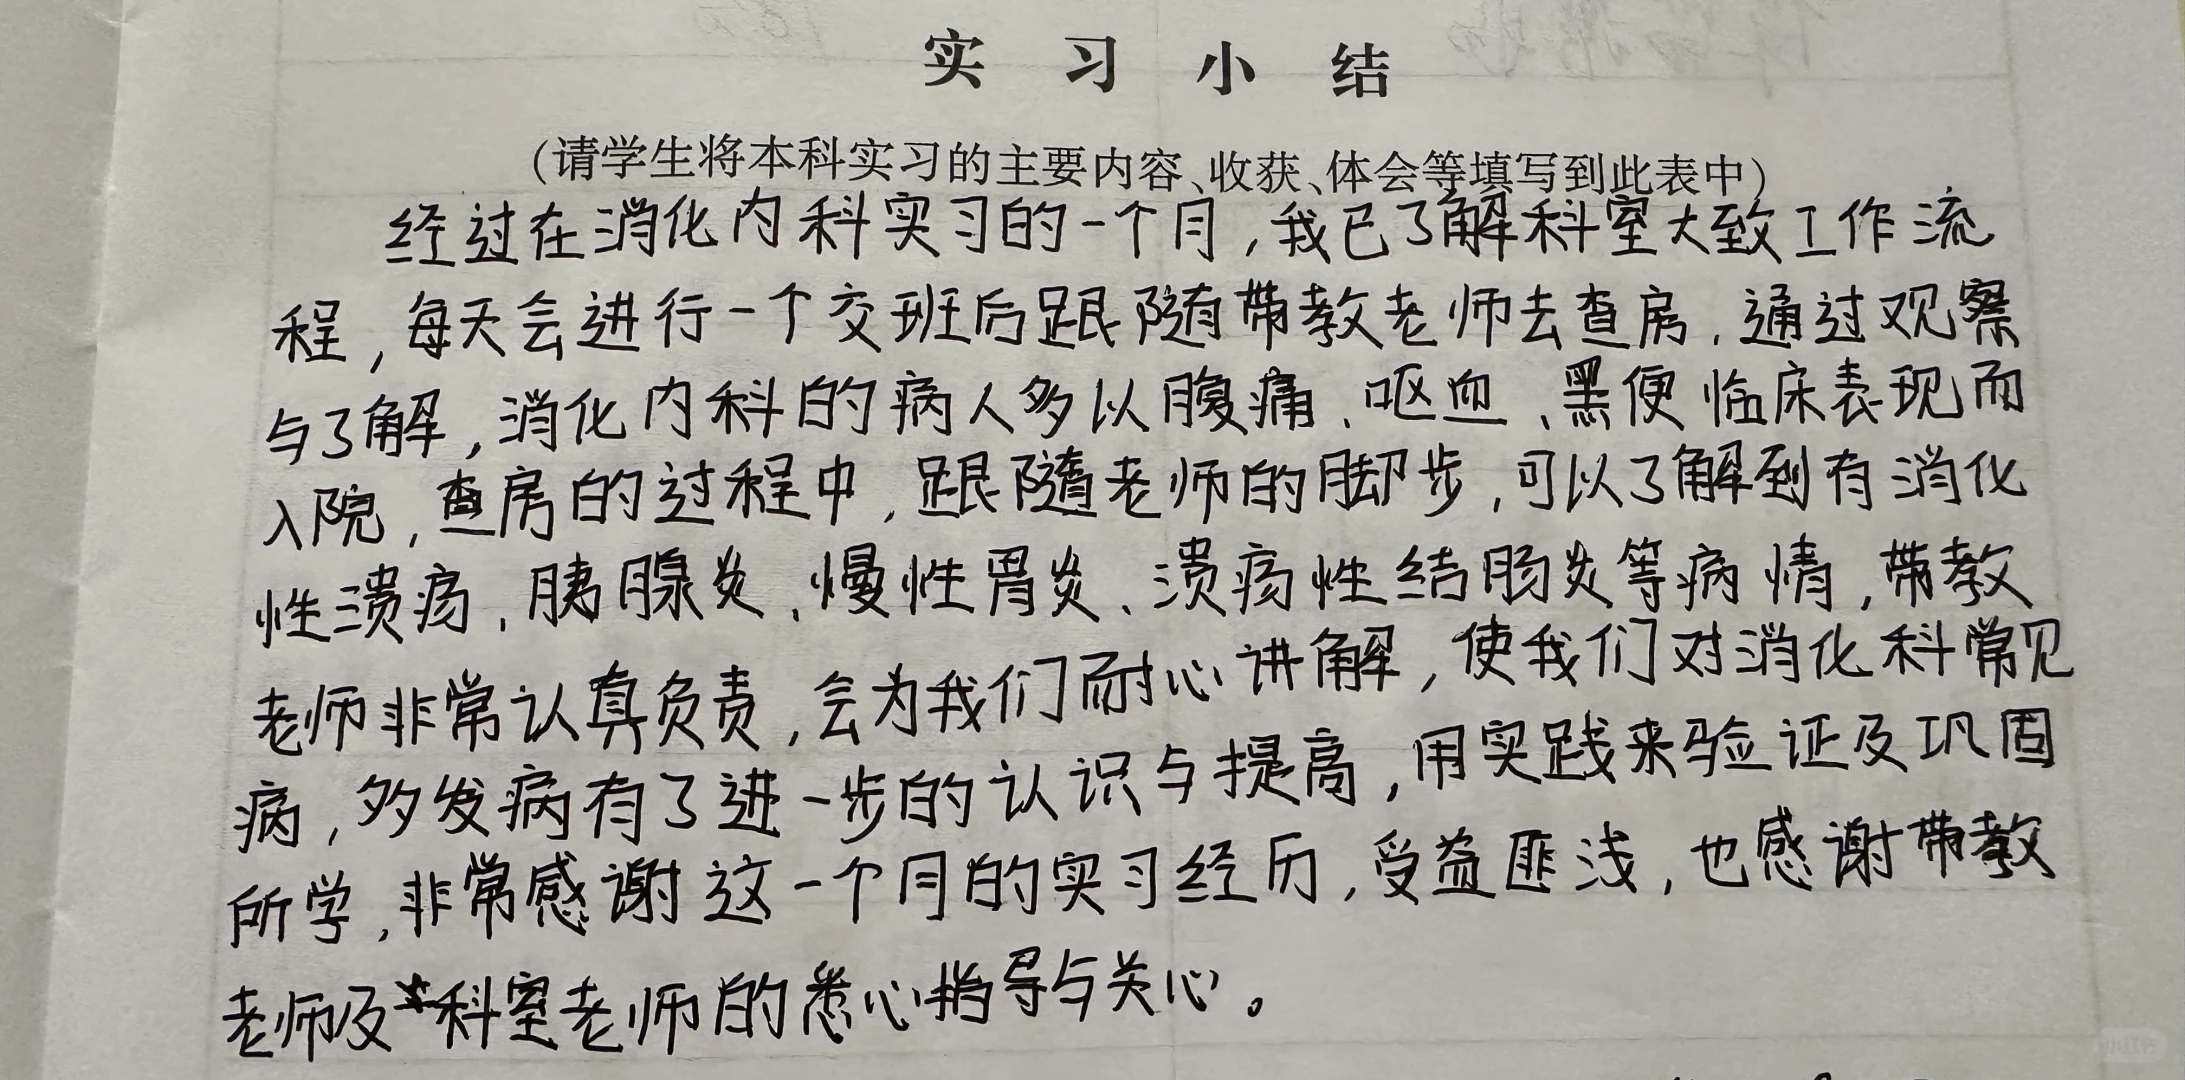 实习小结
(请学生将本科实习的主要内容、收获、体会等填写到此表中)
经过在消化内科实习的一个月,我已了解科室大致工作流
程,每天会进行一个交班后跟随带教老师去查房,通过观察
与了解,消化内科的病人多以腹痛、呕血、黑便临床表现而
入院,查房的过程中,跟随老师的脚步,可以了解到有消化
性溃疡、胰腺炎、慢性胃炎、溃疡性结肠炎等病情,带教
老师非常认真负责,会为我们耐心讲解,使我们对消化科常见
病,多发病有了进一步的认识与提高,用实践来验证及巩固
所学,非常感谢这一个月的实习经历,受益匪浅,也感谢带教
老师及科室老师的悉心指导与关心。
小红书